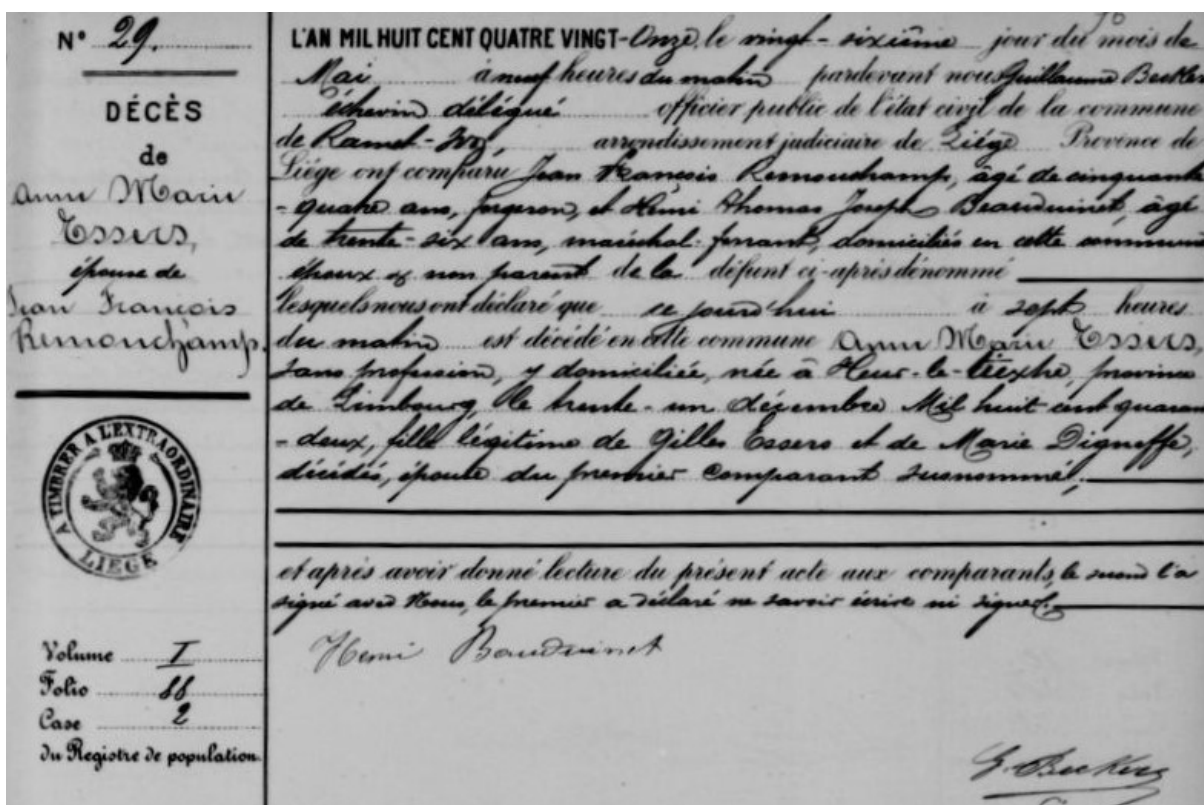 N° 29.
DÉCÈS
de
Anne Marie
Essers,
épouse de
Jean François
Remouchamp.
A TIMBRER A L'EXTRAORDINAIRE
LIEGE
Volume I
Folio 88
Case 2
du Registre de population.
L'AN MIL HUIT CENT QUATRE VINGT-Onze, le vingt-sixième jour du mois de
Mai à neuf heures du matin pardevant nous Guillaume Beckers
échevin délégué officier public de l'état civil de la commune
de Ramet-Yvoz, arrondissement judiciaire de Liége Provence de
Liége ont comparu Jean François Remouchamp, âgé de cinquante
-quatre ans, forgeron, et Henri Thomas Joseph Beauduinet, âgé
de trente-six ans, maréchal-ferrant, domiciliés en cette commune
époux & non parent de la défunt ci-après dénommé
lesquels nous ont déclaré que ce jourd'hui à sept heures
du matin est décédé en cette commune Anne Marie Essers,
sans profession, y domiciliée, née à Heur-le-tiexhe, province
de Limbourg, le trente-un décembre Mil huit cent quaran
-deux, fille légitime de Gilles Essers et de Marie Digneffe,
décédés, épouse du premier comparant susnommé,
et après avoir donné lecture du présent acte aux comparants, le second l'a
signé avec Nous, le premier a déclaré ne savoir écrire ni signer.
Henri Bauduinet
G. Beckers